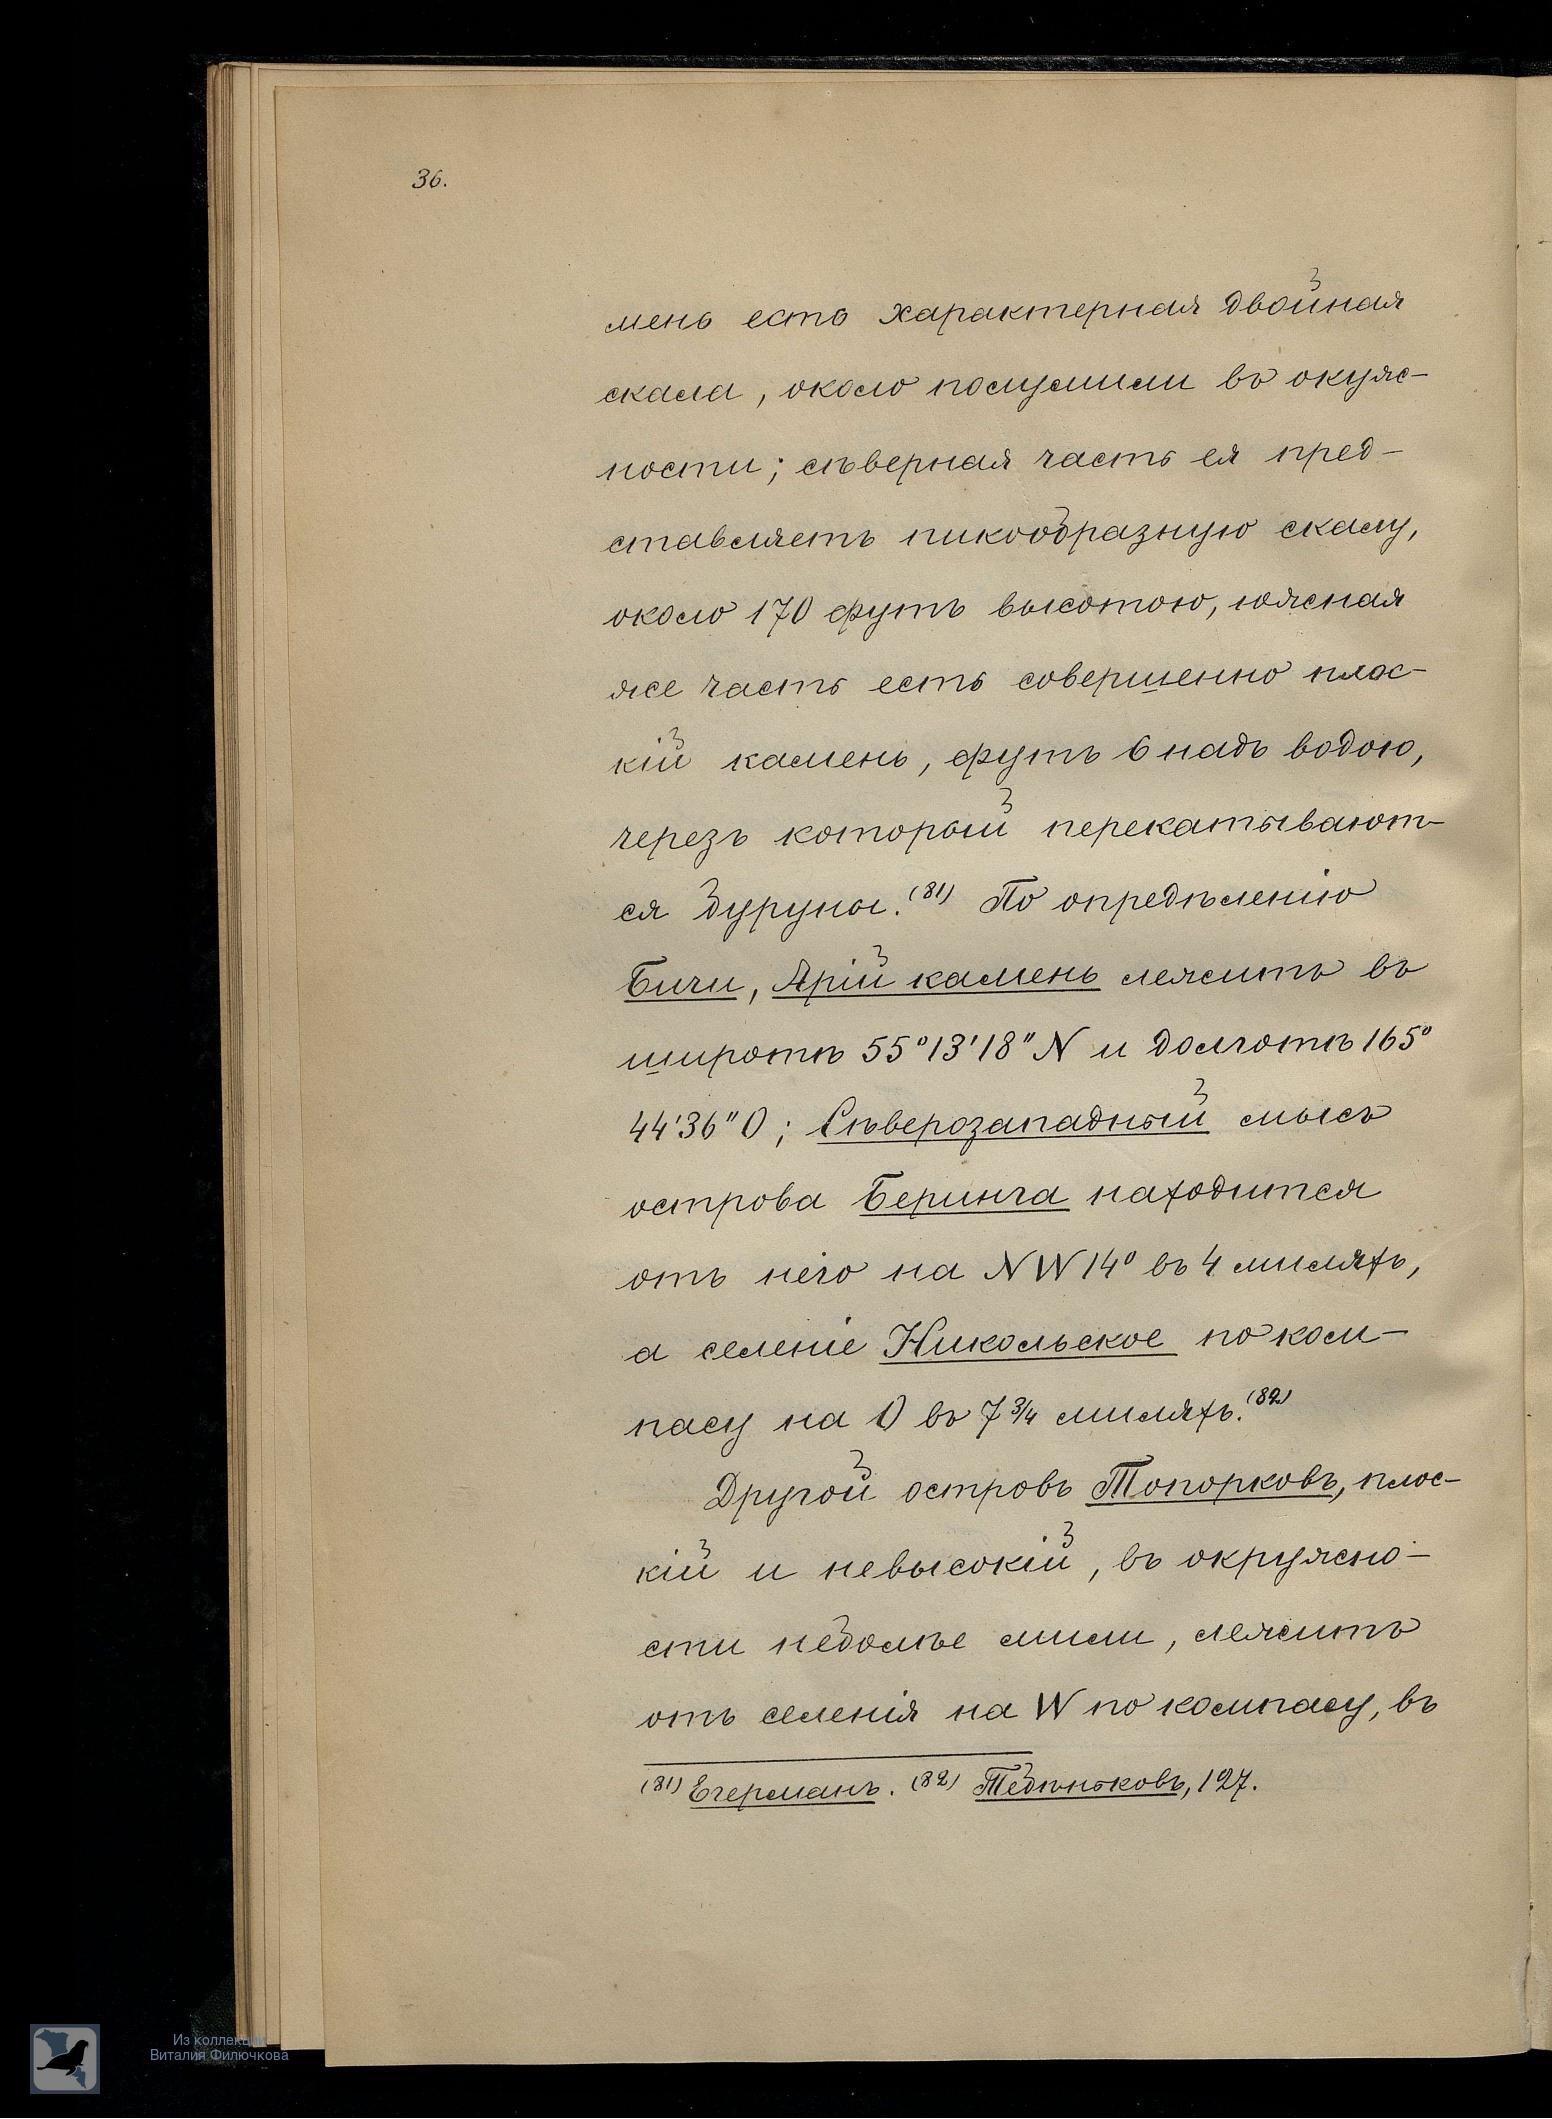 36.
мень есть характерная двойная
скала, около полумили въ окуж-
ности; сѣверная часть ея пред-
ставляетъ пикообразную скалу,
около 170 футъ высотою, южная
же часть есть совершенно плос-
кій камень, футъ 6 надъ водою,
черезъ который перекатывают-
ся буруны.(81) По опредѣленію
Бичи, Арій камень лежитъ въ
широтѣ 55°13'18" N и долготѣ 165°
44'36" O; Сѣверозападный мысъ
острова Беринга находится
отъ него на NW 14° въ 4 миляхъ,
а селеніе Никольское по ком-
пасу на O въ 7 3/4 миляхъ.(82)
Другой островъ Топорковъ, плос-
кій и невысокій, въ окружно-
сти небольше мили, лежитъ
отъ селенія на W по компасу, въ
(81) Егерманъ. (82) Тебѣньковъ, 127.
Из коллекции
Виталия Филючкова